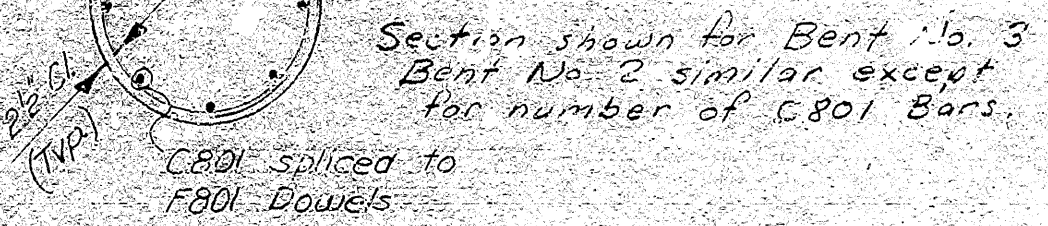 Section shown for Bent No. 3
Bent No. 2 similar except
for number of C801 Bars.
2½" Cl.
(Typ.)
C801 spliced to
F801 Dowels